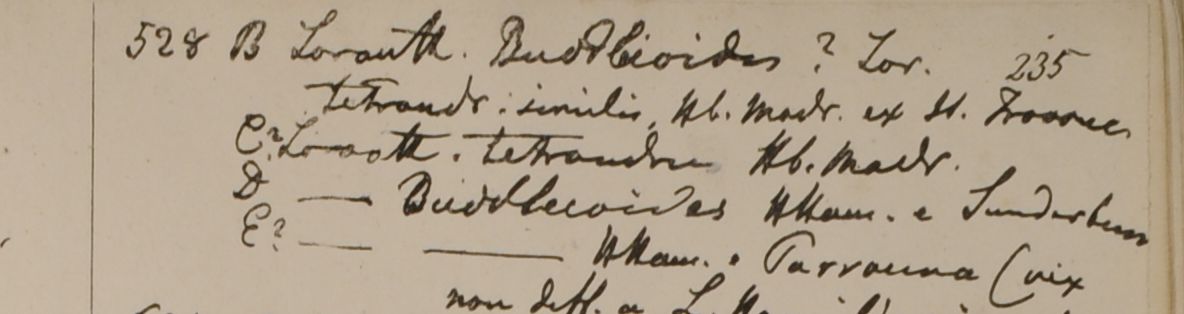 528 B Loranth. Buddleioides ? Lor. 235
tetrandr. similis, Hb. Madr. ex H. Travanc.
C? Loranth. tetrandrus Hb. Madr.
D —— Buddleioides HHam. e Sunderbun
E? —— —— HHam. e Purrouna (vix
non diff. a L.